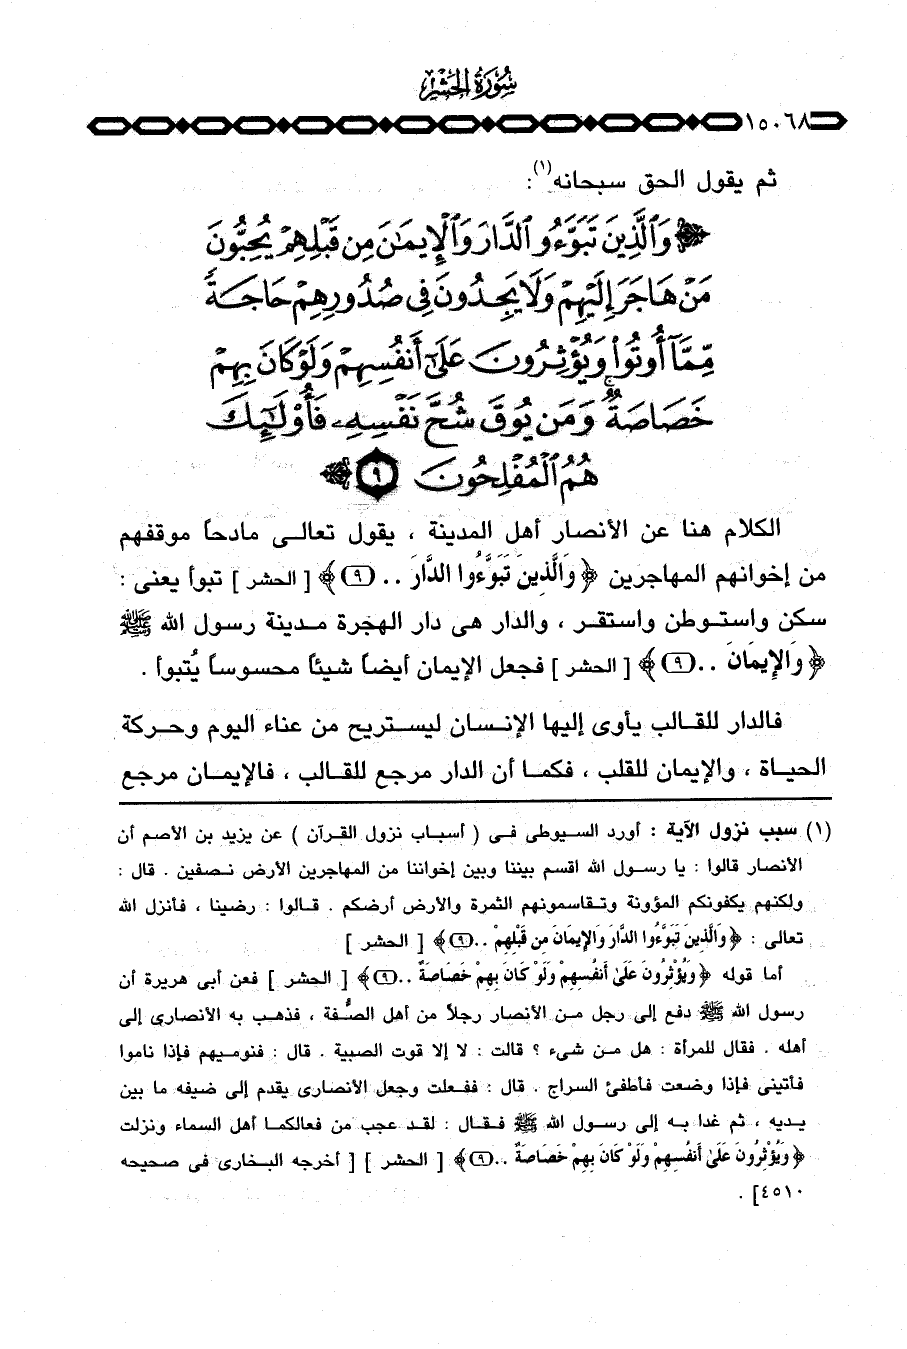 سُورَةُ الحَشْرِ
١٥٠٦٨
ثم يقول الحق سبحانه(١):
﴿ وَٱلَّذِينَ تَبَوَّءُو ٱلدَّارَ وَٱلْإِيمَٰنَ مِن قَبْلِهِمْ يُحِبُّونَ
مَنْ هَاجَرَ إِلَيْهِمْ وَلَا يَجِدُونَ فِى صُدُورِهِمْ حَاجَةً
مِّمَّآ أُوتُوا۟ وَيُؤْثِرُونَ عَلَىٰٓ أَنفُسِهِمْ وَلَوْ كَانَ بِهِمْ
خَصَاصَةٌ ۚ وَمَن يُوقَ شُحَّ نَفْسِهِۦ فَأُو۟لَٰٓئِكَ
هُمُ ٱلْمُفْلِحُونَ ٩ ﴾
الكلام هنا عن الأنصار أهل المدينة ، يقول تعالى مادحاً موقفهم
من إخوانهم المهاجرين ﴿ وَالَّذِينَ تَبَوَّءُوا الدَّارَ .. (٩) ﴾ [ الحشر ] تبوأ يعنى :
سكن واستوطن واستقر ، والدار هى دار الهجرة مدينة رسول الله ﷺ
﴿ وَالإِيمَانَ .. (٩) ﴾ [ الحشر ] فجعل الإيمان أيضاً شيئاً محسوساً يُتبوأ .
فالدار للقالب يأوى إليها الإنسان ليستريح من عناء اليوم وحركة
الحياة ، والإيمان للقلب ، فكما أن الدار مرجع للقالب ، فالإيمان مرجع
(١) سبب نزول الآية : أورد السيوطى فى ( أسباب نزول القرآن ) عن يزيد بن الأصم أن
الأنصار قالوا : يا رسول الله اقسم بيننا وبين إخواننا من المهاجرين الأرض نصفين . قال :
ولكنهم يكفونكم المؤونة وتقاسمونهم الثمرة والأرض أرضكم . قالوا : رضينا ، فأنزل الله
تعالى : ﴿ وَالَّذِينَ تَبَوَّءُوا الدَّارَ وَالإِيمَانَ مِن قَبْلِهِمْ ..(٩) ﴾ [ الحشر ]
أما قوله ﴿ وَيُؤْثِرُونَ عَلَىٰ أَنفُسِهِمْ وَلَوْ كَانَ بِهِمْ خَصَاصَةٌ ..(٩) ﴾ [ الحشر ] فعن أبى هريرة أن
رسول الله ﷺ دفع إلى رجل من الأنصار رجلاً من أهل الصُّفة ، فذهب به الأنصارى إلى
أهله . فقال للمرأة : هل من شىء ؟ قالت : لا إلا قوت الصبية . قال : فنوميهم فإذا ناموا
فأتينى فإذا وضعت فأطفئ السراج . قال : ففعلت وجعل الأنصارى يقدم إلى ضيفه ما بين
يديه ، ثم غدا به إلى رسول الله ﷺ فقال : لقد عجب من فعالكما أهل السماء ونزلت
﴿ وَيُؤْثِرُونَ عَلَىٰ أَنفُسِهِمْ وَلَوْ كَانَ بِهِمْ خَصَاصَةٌ ..(٩) ﴾ [ الحشر ] [ أخرجه البخارى فى صحيحه
٤٥١٠] .